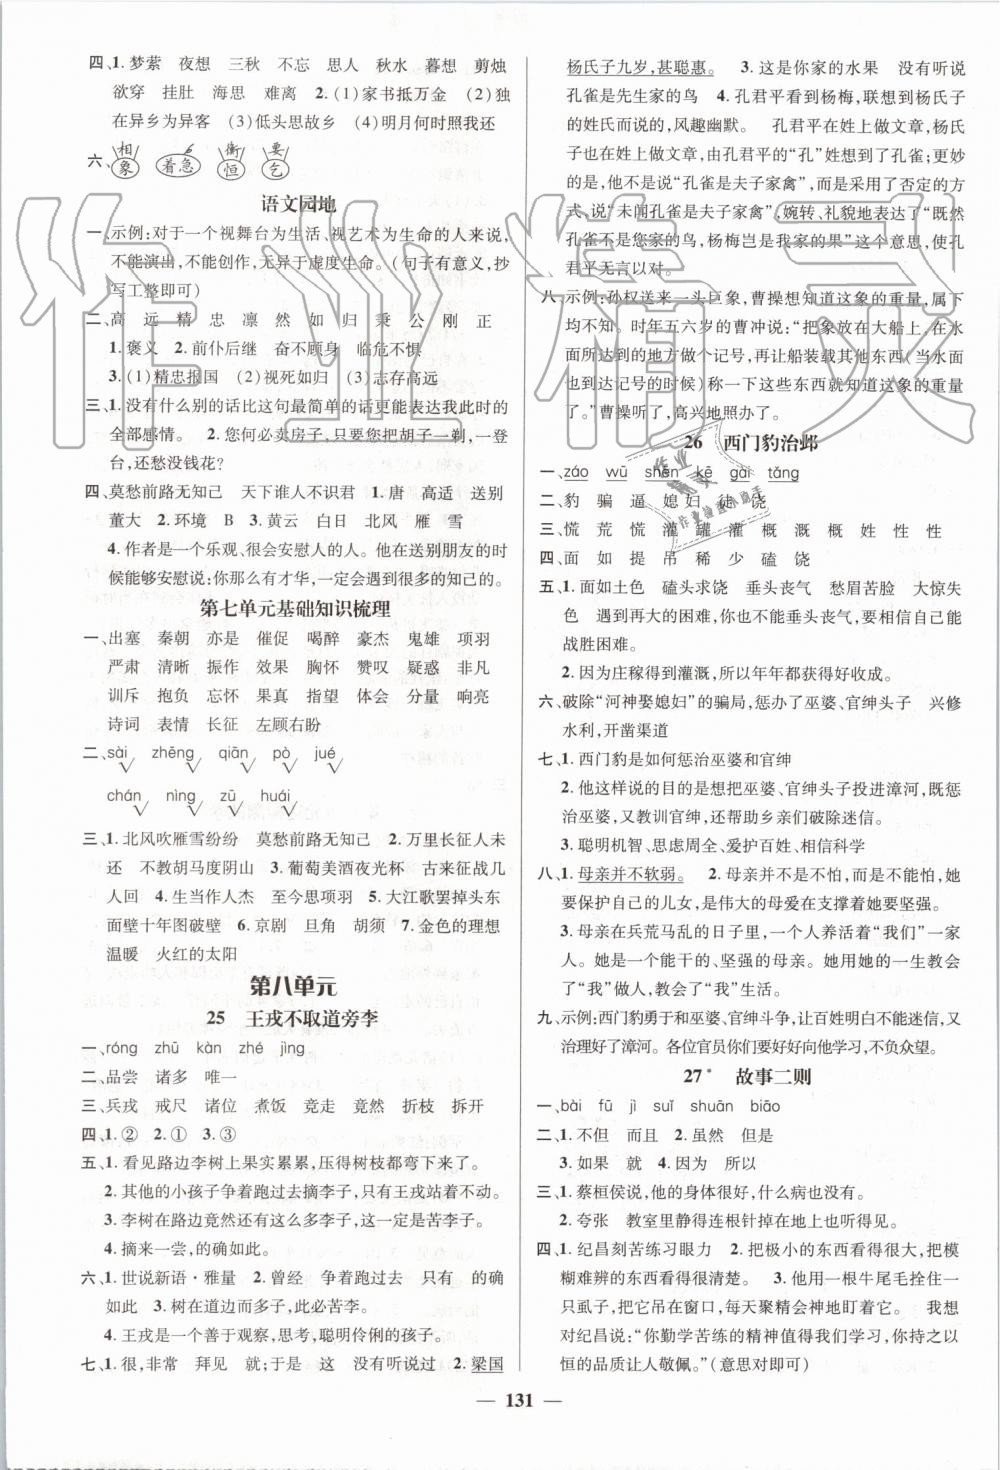 四、1.梦萦　夜想　三秋　不忘　思人　秋水　暮想　剪烛
欲穿　挂肚　海思　难离　2.(1)家书抵万金　(2)独
在异乡为异客　(3)低头思故乡　(4)明月何时照我还
六、相象　着急　衡恒　要乞
语文园地
一、示例:对于一个视舞台为生活、视艺术为生命的人来说,
不能演出,不能创作,无异于虚度生命。(句子有意义,抄
写工整即可)
二、高　远　精　忠　凛　然　如　归　秉　公　刚　正
1.褒义　2.前仆后继　奋不顾身　临危不惧
3.(1)精忠报国　(2)视死如归　(3)志存高远
三、1.没有什么别的话比这句最简单的话更能表达我此时的
全部感情。　2.您何必卖房子,只要您把胡子一剃,一登
台,还愁没钱花?
四、莫愁前路无知己　天下谁人不识君　1.唐　高适　送别
董大　2.环境　B　3.黄云　白日　北风　雁　雪
4.作者是一个乐观、很会安慰人的人。他在送别朋友的时
候能够安慰说:你那么有才华,一定会遇到很多的知己的。
第七单元基础知识梳理
一、出塞　秦朝　亦是　催促　喝醉　豪杰　鬼雄　项羽
严肃　清晰　振作　效果　胸怀　赞叹　疑惑　非凡
训斥　抱负　忘怀　果真　指望　体会　分量　响亮
诗词　表情　长征　左顾右盼
二、sài　zhēng　qiān　pò　jué
chán　nìng　zū　huái
三、1.北风吹雁雪纷纷　莫愁前路无知己　2.万里长征人未
还　不教胡马度阴山　3.葡萄美酒夜光杯　古来征战几
人回　4.生当作人杰　至今思项羽　5.大江歌罢掉头东
面壁十年图破壁　6.京剧　旦角　胡须　7.金色的理想
温暖　火红的太阳
第八单元
25　王戎不取道旁李
一、róng　zhū　kàn　zhé　jìng
二、品尝　诸多　唯一
三、兵戎　戒尺　诸位　煮饭　竞走　竟然　折枝　拆开
四、1.②　2.①　3.③
五、1.看见路边李树上果实累累,压得树枝都弯下来了。
2.其他的小孩子争着跑过去摘李子,只有王戎站着不动。
3.李树在路边竟然还有这么多李子,这一定是苦李子。
4.摘来一尝,的确是这样。
六、1.世说新语·雅量　2.曾经　争着跑过去　只有　的确
如此　3.树在道边而多子,此必苦李。
4.王戎是一个善于观察,思考,聪明伶俐的孩子。
七、1.很,非常　拜见　就;于是　这　没有听说过　2.梁国
杨氏子九岁,甚聪惠。　3.这是你家的水果　没有听说
孔雀是先生家的鸟　4.孔君平看到杨梅,联想到杨氏子
的姓氏而说的,风趣幽默。　孔君平在姓上做文章,杨氏
子也在姓上做文章,由孔君平的“孔”姓想到了孔雀;更妙
的是,他不是说“孔雀是夫子家禽”,而是采用了否定的方
式,说“未闻孔雀是夫子家禽”,婉转、礼貌地表达了“既然
孔雀不是您家的鸟,杨梅岂是我家的果”这个意思,使孔
君平无言以对。
八、示例:孙权送来一头巨象,曹操想知道这象的重量,属下
均不知。时年五六岁的曹冲说:“把象放在大船上,在水
面所达到的地方做个记号,再让船装载其他东西(当水面
也到达记号的时候)称一下这些东西就知道这象的重量
了。”曹操听了,高兴地照办了。
26　西门豹治邺
一、záo　wū　shēn　kē　gài　tǎng
二、豹　骗　逼　媳妇　徒　饶
三、慌　荒　慌　灌　罐　灌　概　溉　概　姓　性　性
四、面　如　提　吊　稀　少　磕　饶
五、1.面如土色　磕头求饶　垂头丧气　愁眉苦脸　大惊失
色　遇到再大的困难,你也不能垂头丧气,要想办法
战胜困难。
2.因为庄稼得到灌溉,所以年年都获得好收成。
六、破除“河神娶媳妇”的骗局,惩办了巫婆、官绅头子　兴修
水利,开凿渠道
七、1.西门豹是如何惩治巫婆和官绅
2.他这样说的目的是想把巫婆、官绅头子投进漳河,既惩
治巫婆,又教训官绅,还帮助乡亲们破除迷信。
3.聪明机智、思虑周全、爱护百姓、相信科学
八、1.母亲并不软弱。　2.母亲并不是不怕,而是不能怕,她
要保护自己的儿女,是伟大的母爱在支撑着她要坚强。
3.母亲在兵荒马乱的日子里,一个人养活着“我们”一家
人。她是一个能干的、坚强的母亲。她用她的一生教会
了“我”做人,教会了“我”生活。
九、示例:西门豹勇于和巫婆、官绅斗争,让百姓明白不能迷信,又
治理好了漳河。各位官员你们要好好向他学习,不负众望。
27*　故事二则
一、bài　fū　jì　suǐ　shuān　biāo
二、1.不但　而且　2.虽然　但是
3.如果　就　4.因为　所以
三、1.蔡桓侯说,他的身体很好,什么病也没有。
2.夸张　教室里静得连根针掉在地上也听得见。
四、1.纪昌刻苦练习眼力　2.把极小的东西看得很大,把模
糊难辨的东西看得很清楚。　3.他用一根牛尾毛拴住一
只虱子,把它吊在窗口,每天聚精会神地盯着它。　我想
对纪昌说:“你勤学苦练的精神值得我们学习,你持之以
恒的品质让人敬佩。”(意思对即可)
131
作业精灵